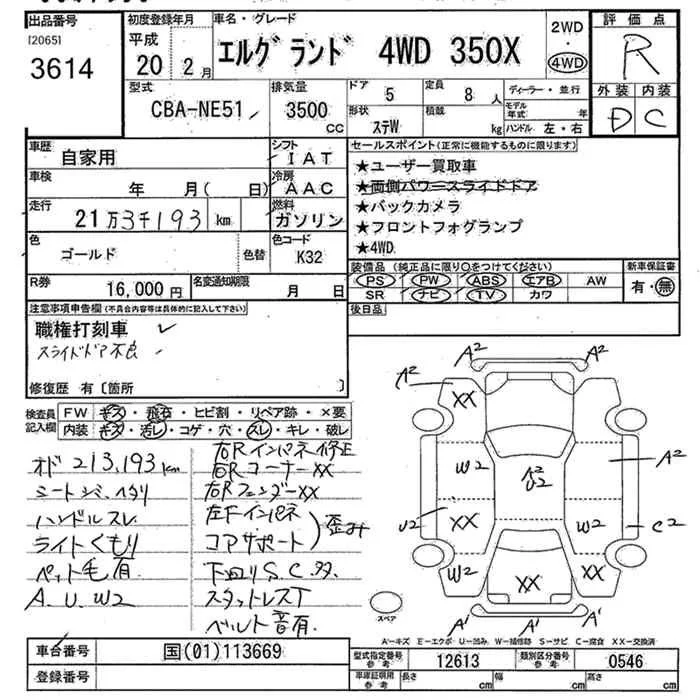 出品番号
[2065]
3614
初度登録年月
平成
20年 2月
車名・グレード
エルグランド 4WD 350X
2WD
・
4WD
評価点
R
外装 内装
D C
型式
CBA-NE51
排気量
3500
CC
ドア
5
定員
8 人
形状
ステW
積載
kg
ディーラー・並行
モデル年式 年
ハンドル 左・右
車歴
自家用
シフト
IAT
車検
年 月( 日)
冷房
AAC
走行
21万3千193 km
燃料
ガソリン
色
ゴールド
色替
色コード
K32
R券
16,000円
名変期限
月 日
セールスポイント(正常に機能するものに限ります)
★ユーザー買取車
★両側パワースライドドア
★バックカメラ
★フロントフォグランプ
★4WD
装備品 (純正品に限り○をつけてください)
PS PW ABS エアB AW
SR ナビ TV カワ
新車保証書
有・無
後日品
注意事項申告欄(不具合内容等は具体的に記入して下さい)
職権打刻車
スライドドア不良
修復歴 有〔箇所 〕
検査員
記入欄
FW キズ・飛石・ヒビ割・リペア跡・×要
内装 キズ・汚レ・コゲ・穴・スレ・キレ・破レ
オド 213,193 km
シートシミ、ヘタリ
ハンドルスレ
ライトくもり
ペット毛有
A.U.W2
右Rインパネ修正
右Rコーナー××
右Rフェンダー××
左Fインパネ
コアサポート
歪み
下回りS.C.多
スタットレスT
ベルト音有.
A2
A2
A2
XX
W2
A2
U2
A2
U2
XX
W2
C2
W2
XX
XX
A1
A1
スペア
A-キズ E-エクボ U-凹み W-補修跡 S-サビ C-腐食 XX-交換済
車台番号
国(01)113669
登録番号
型式指定番号
参考
12613
類別区分番号
参考
0546
車庫証明用
参考
長さ cm
幅 cm
高さ cm